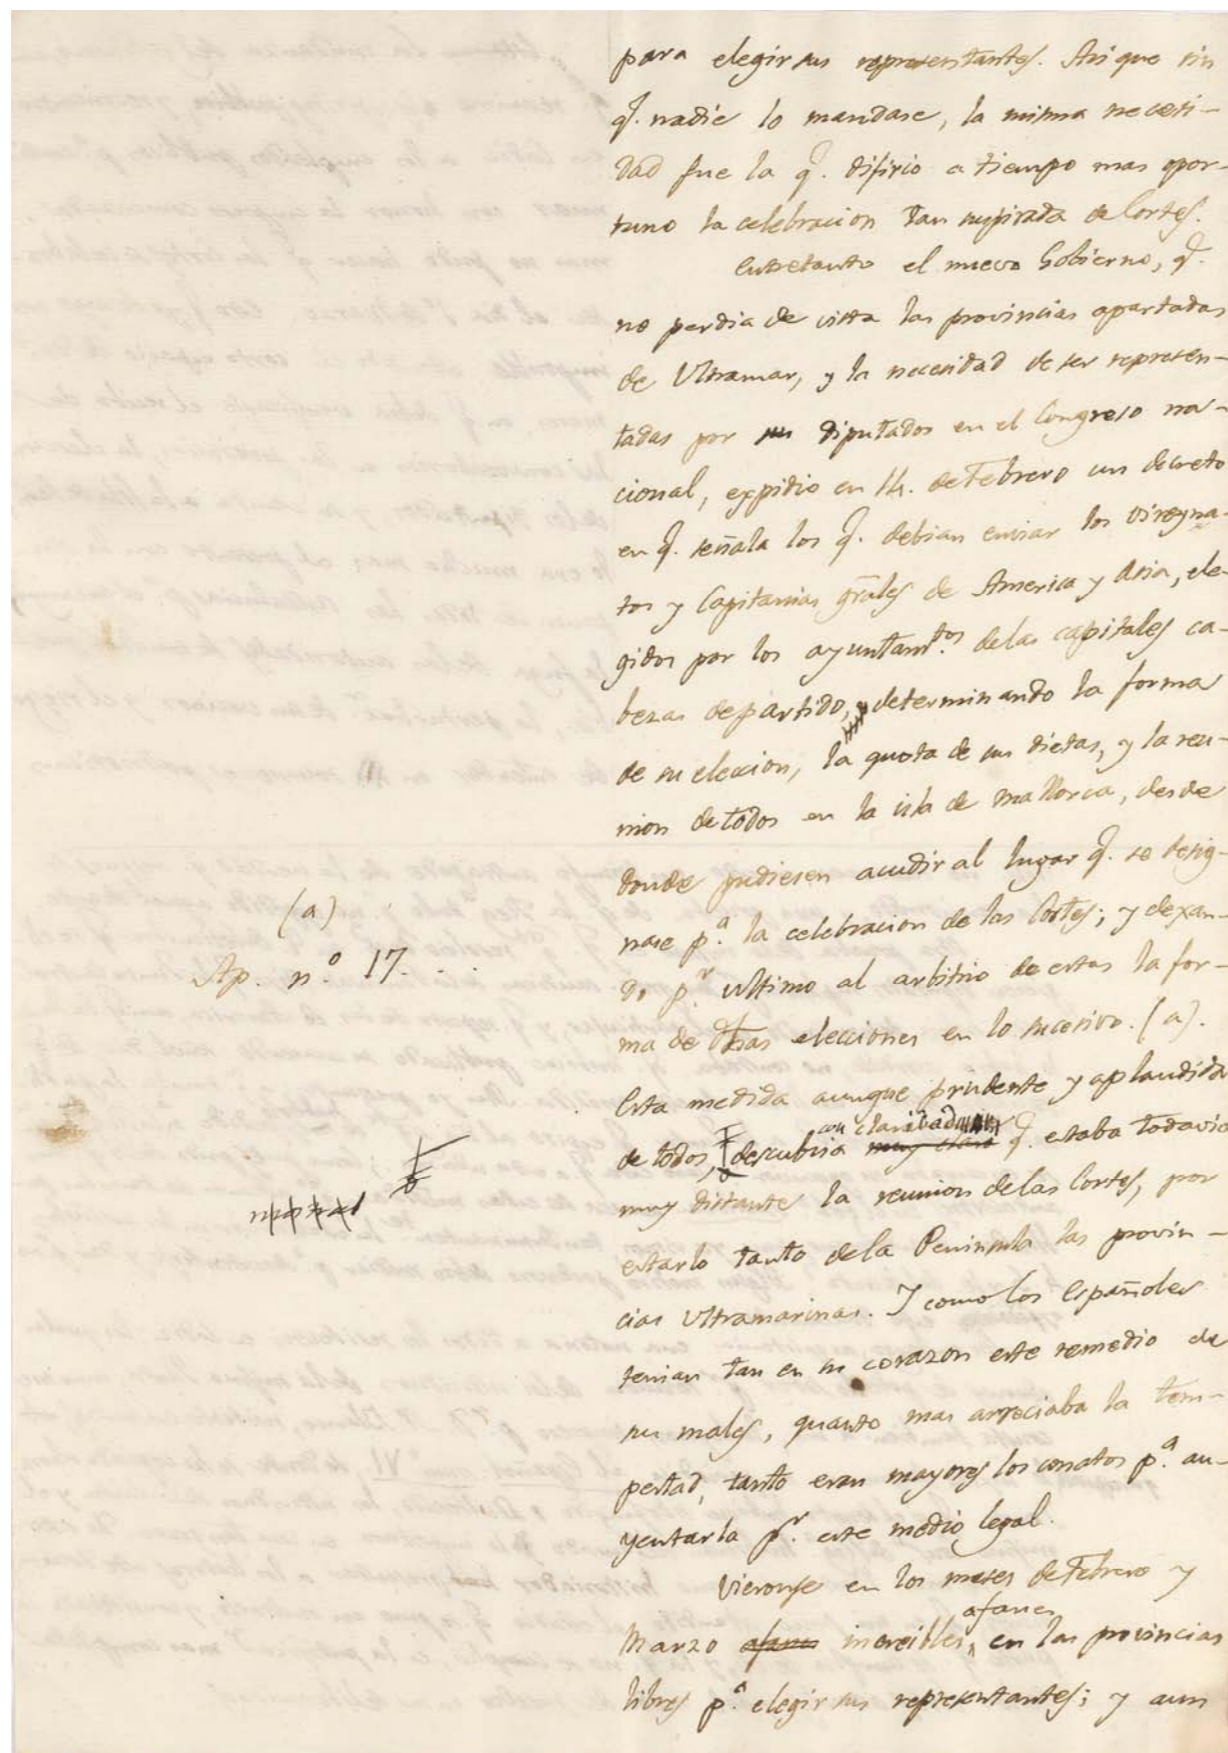 para elegir sus representantes. Asi que sin
q. nadie lo mandase, la misma necesi-
dad fue la q. difirio a tiempo mas opor-
tuno la celebracion tan suspirada de Cortes.
Entretanto el nuevo Gobierno, q.
no perdia de vista las provincias apartadas
de Ultramar, y la necesidad de ser represen-
tadas por sus diputados en el Congreso na-
cional, expidio en 14. de Febrero un decreto
en q. señala los q. debian enviar los vireyna-
tos y Capitanias grãles de America y Asia, ele-
gidos por los ayuntamtos. de las capitales ca-
bezas de partido, determinando la forma
de su eleccion, la quota de sus dietas, y la reu-
nion de todos en la isla de Mallorca, desde
donde pudiesen acudir al lugar q. se desig-
nase pa. la celebracion de las Cortes; y dexan-
do pr. ultimo al arbitrio de estas la for-
ma de dhas elecciones en lo sucesivo. (a).
(a)
Ap. n.o 17. . .
Esta medida aunque prudente y aplaudida
con claridad
de todos, descubria muy clara q. estaba todavia
muy distante la reunion de las Cortes, por
estarlo tanto de la Peninsula las provin-
cias Ultramarinas. I como los Españoles
tenian tan en su corazon este remedio de
sus males, quanto mas arreciaba la tem-
pestad, tanto eran mayores los conatos pa. au-
yentarla pr. este medio legal.
Vieronse en los meses de Febrero y
afanes
Marzo afanes increibles, en las provincias
libres pa. elegir sus representantes; y aun